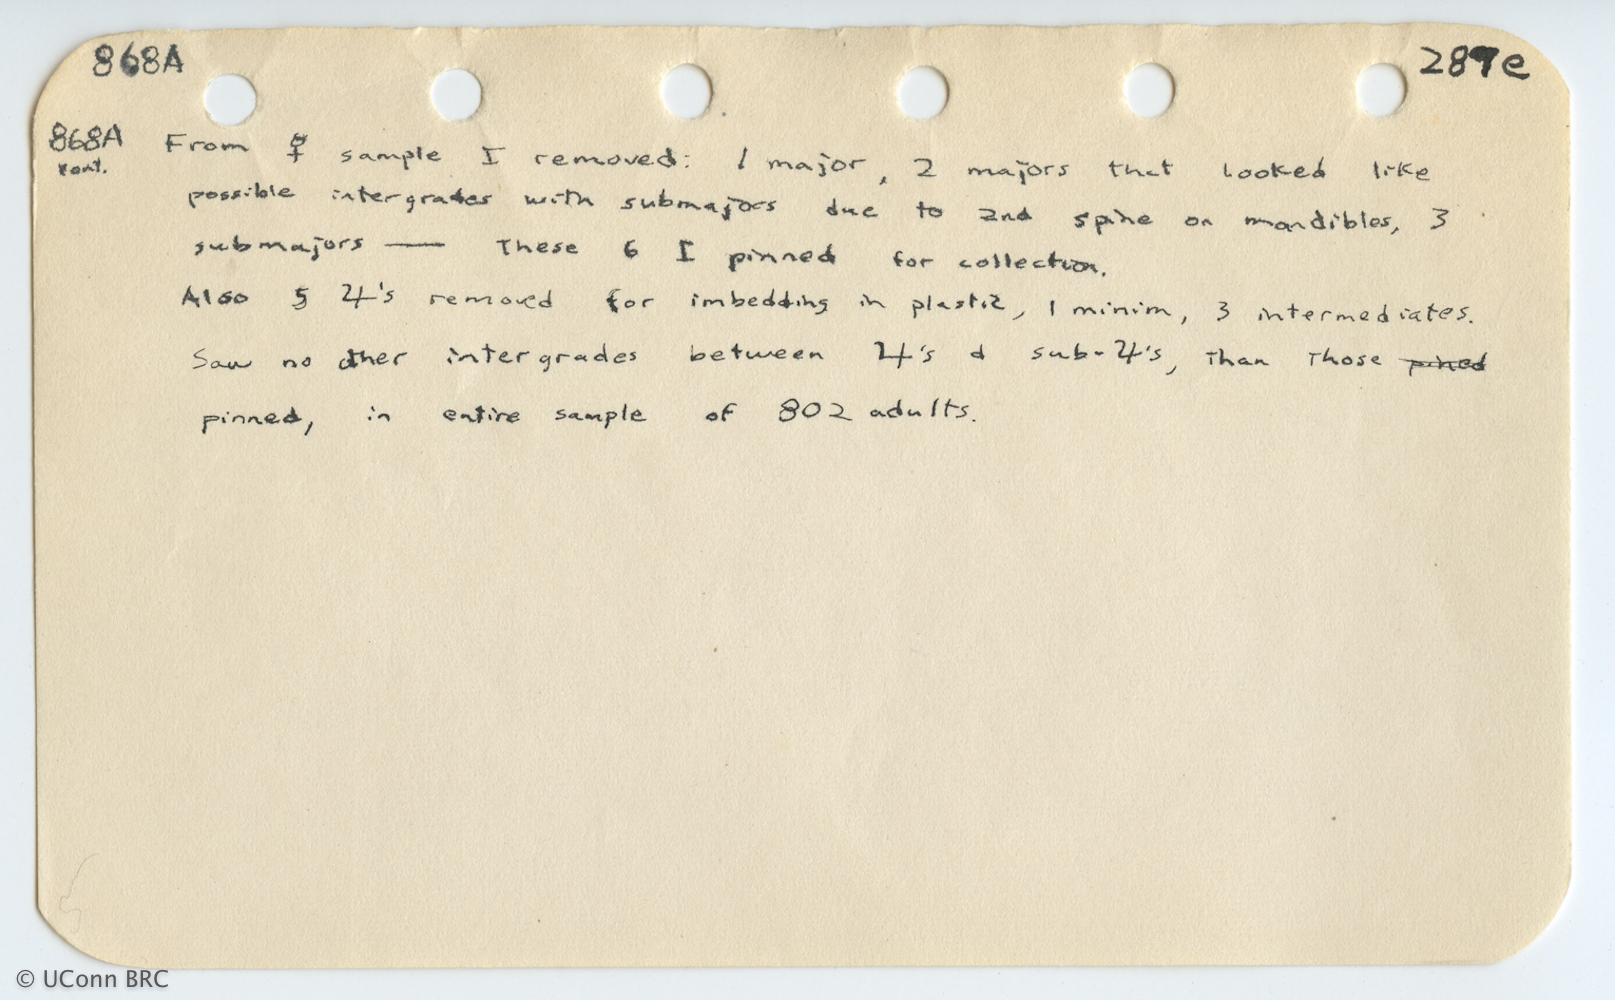 868A 287e
868A From ☿ sample I removed: 1 major, 2 majors that looked like
cont.
possible intergrades with submajors due to 2nd spine on mandibles, 3
submajors — These 6 I pinned for collection.
Also 5 ♃'s removed for imbedding in plastic, 1 minim, 3 intermediates.
Saw no other intergrades between ♃'s & sub-♃'s, than those pined
pinned, in entire sample of 802 adults.
© UConn BRC